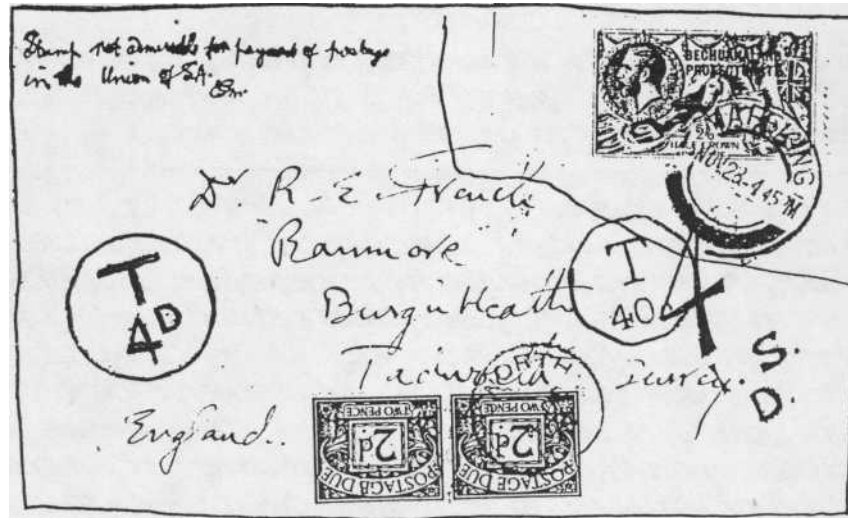 Stamp not admissible for payment of postage
in the Union of S.A.
BECHUANALAND
PROTECTORATE
HALF CROWN
MAFEKING
NOV 28 4 45 PM
Dr R. E. French
Ranmore
Burgh Heath
Tadworth Surrey.
England.
T
4D
T
40
S.
D.
ORTH
POSTAGE DUE
2d
TWO PENCE
POSTAGE DUE
2d
TWO PENCE